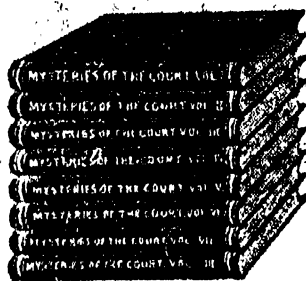 MYSTERIES OF THE COURT VOL I
MYSTERIES OF THE COURT VOL II
MYSTERIES OF THE COURT VOL III
MYSTERIES OF THE COURT VOL
MYSTERIES OF THE COURT VOL V
MYSTERIES OF THE COURT VOL VI
MYSTERIES OF THE COURT VOL VII
MYSTERIES OF THE COURT. VOL. III